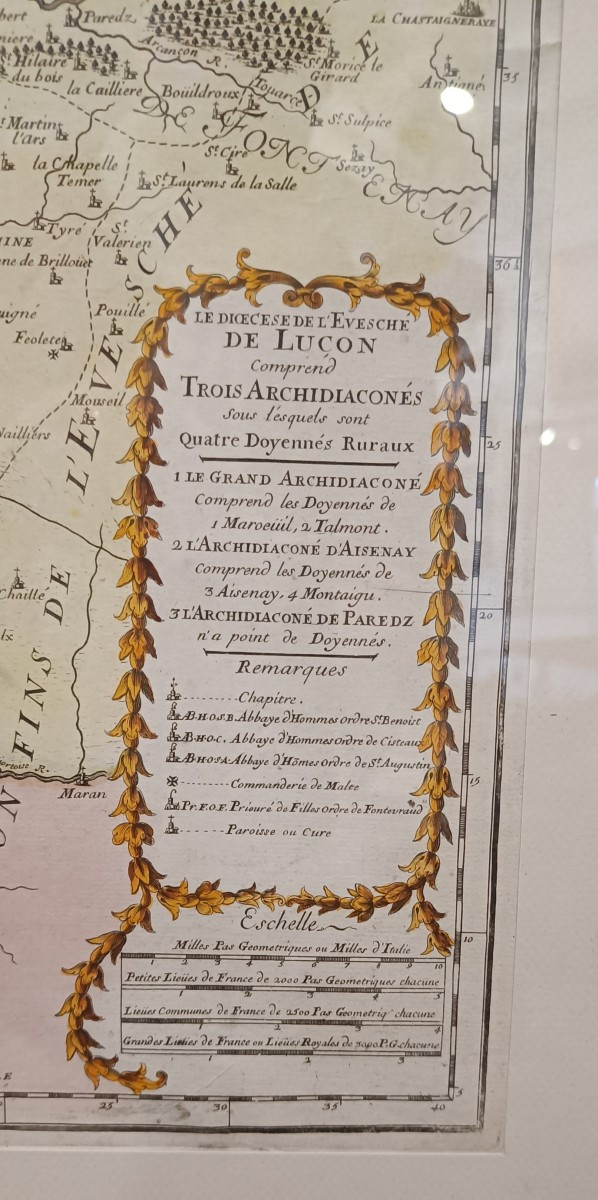 bert
Paredz
LA CHASTAIGNERAYE
niere
Arcançon R.
St Hilaire
du bois
St Morice le
Girard
35
la Cailliere
Boüildroux
Touarce
Antigné
DE FONTENAY
St Martin
l'Ars
St Sulpice
St Cire
Sezay
la Chapelle
Temer
St Laurens de la Salle
Tyré
St
Valerien
INE
ne de Brillouët
L'EVESCHE DE
361
uigné
Pouillé
Feolete
Mouseil
Nailliers
LE DIŒCESE DE L'EVESCHÉ
DE LUÇON
Comprend
TROIS ARCHIDIACONÉS
sous lesquels sont
Quatre Doyennés Ruraux
25
1 LE GRAND ARCHIDIACONÉ
Comprend les Doyennés de
1 Maroeüil, 2 Talmont.
2 L'ARCHIDIACONÉ D'AISENAY
Comprend les Doyennés de
3 Aisenay, 4 Montaigu.
3 L'ARCHIDIACONÉ DE PAREDZ
n'a point de Doyennés.
20
Chaillé
FINS DE
Remarques
Chapitre.
AB·H·O·S·B. Abbaye d'Hommes ordre St. Benoist
AB·H·O·C. Abbaye d'Hommes ordre de Cisteaux
AB·H·O·S·A· Abbaye d'Hõmes ordre de St. Augustin
Commanderie de Malte
Pr. F. O. F. Prieuré de Filles ordre de Fontevraud
Paroisse ou Cure
Maran
15
Eschelle
10
Milles Pas Geometriques ou Milles d'Italie
1 2 3 4 5 6 7 8 9 10
Petites Lieües de France de 2000 Pas Geometriques chacune
1 2 3 4 5
Lieües Communes de France de 2500 Pas Geometriq chacune
1 2 3 4
Grandes Lieües de France ou Lieües Royales de 3000 P.G. chacune
1 2 3
5
25 30 35 40